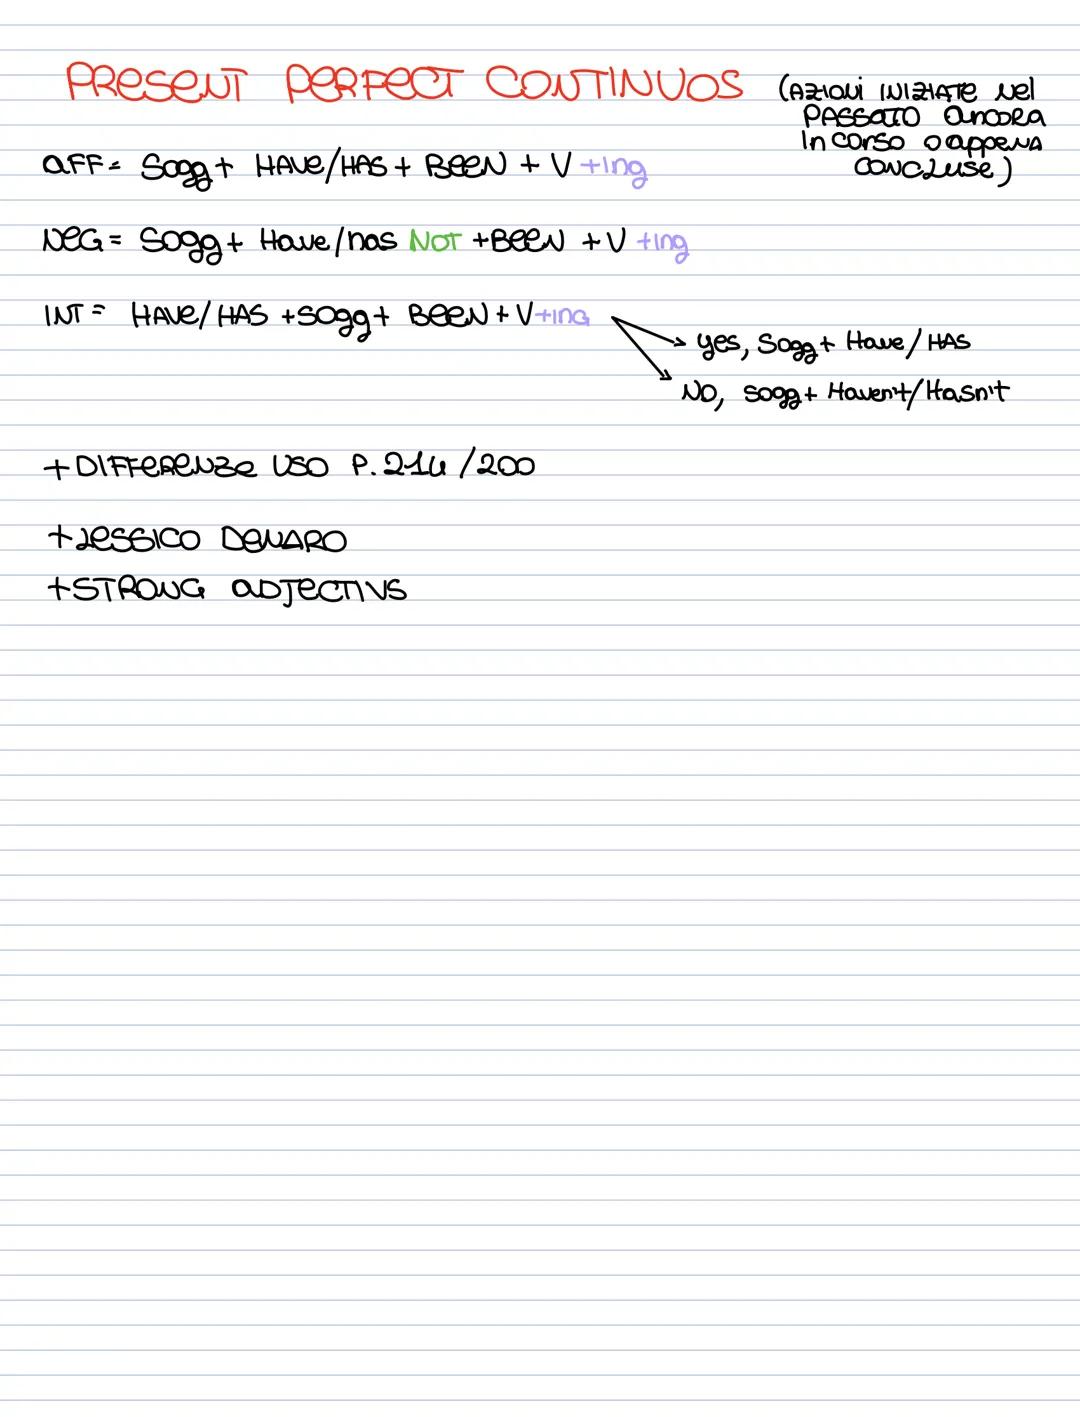 PRESENT PERFECT CONTINUOS (AZIONI INIZIATE NEL
PASSATO ANCORA
IN CORSO O APPENA
CONCLUSE)
AFF= Sogg + HAVE/HAS + BEEN + V +ing
NEG= Sogg + Have/has NOT +BEEN +V +ing
INT= HAVE/HAS +sogg+ BEEN+V+ing
yes, Sogg+ Have/HAS
NO, sogg+ Haven't/Hasn't
+DIFFERENZE USO P.214/200
+LESSICO DENARO
+STRONG ADJECTIVS